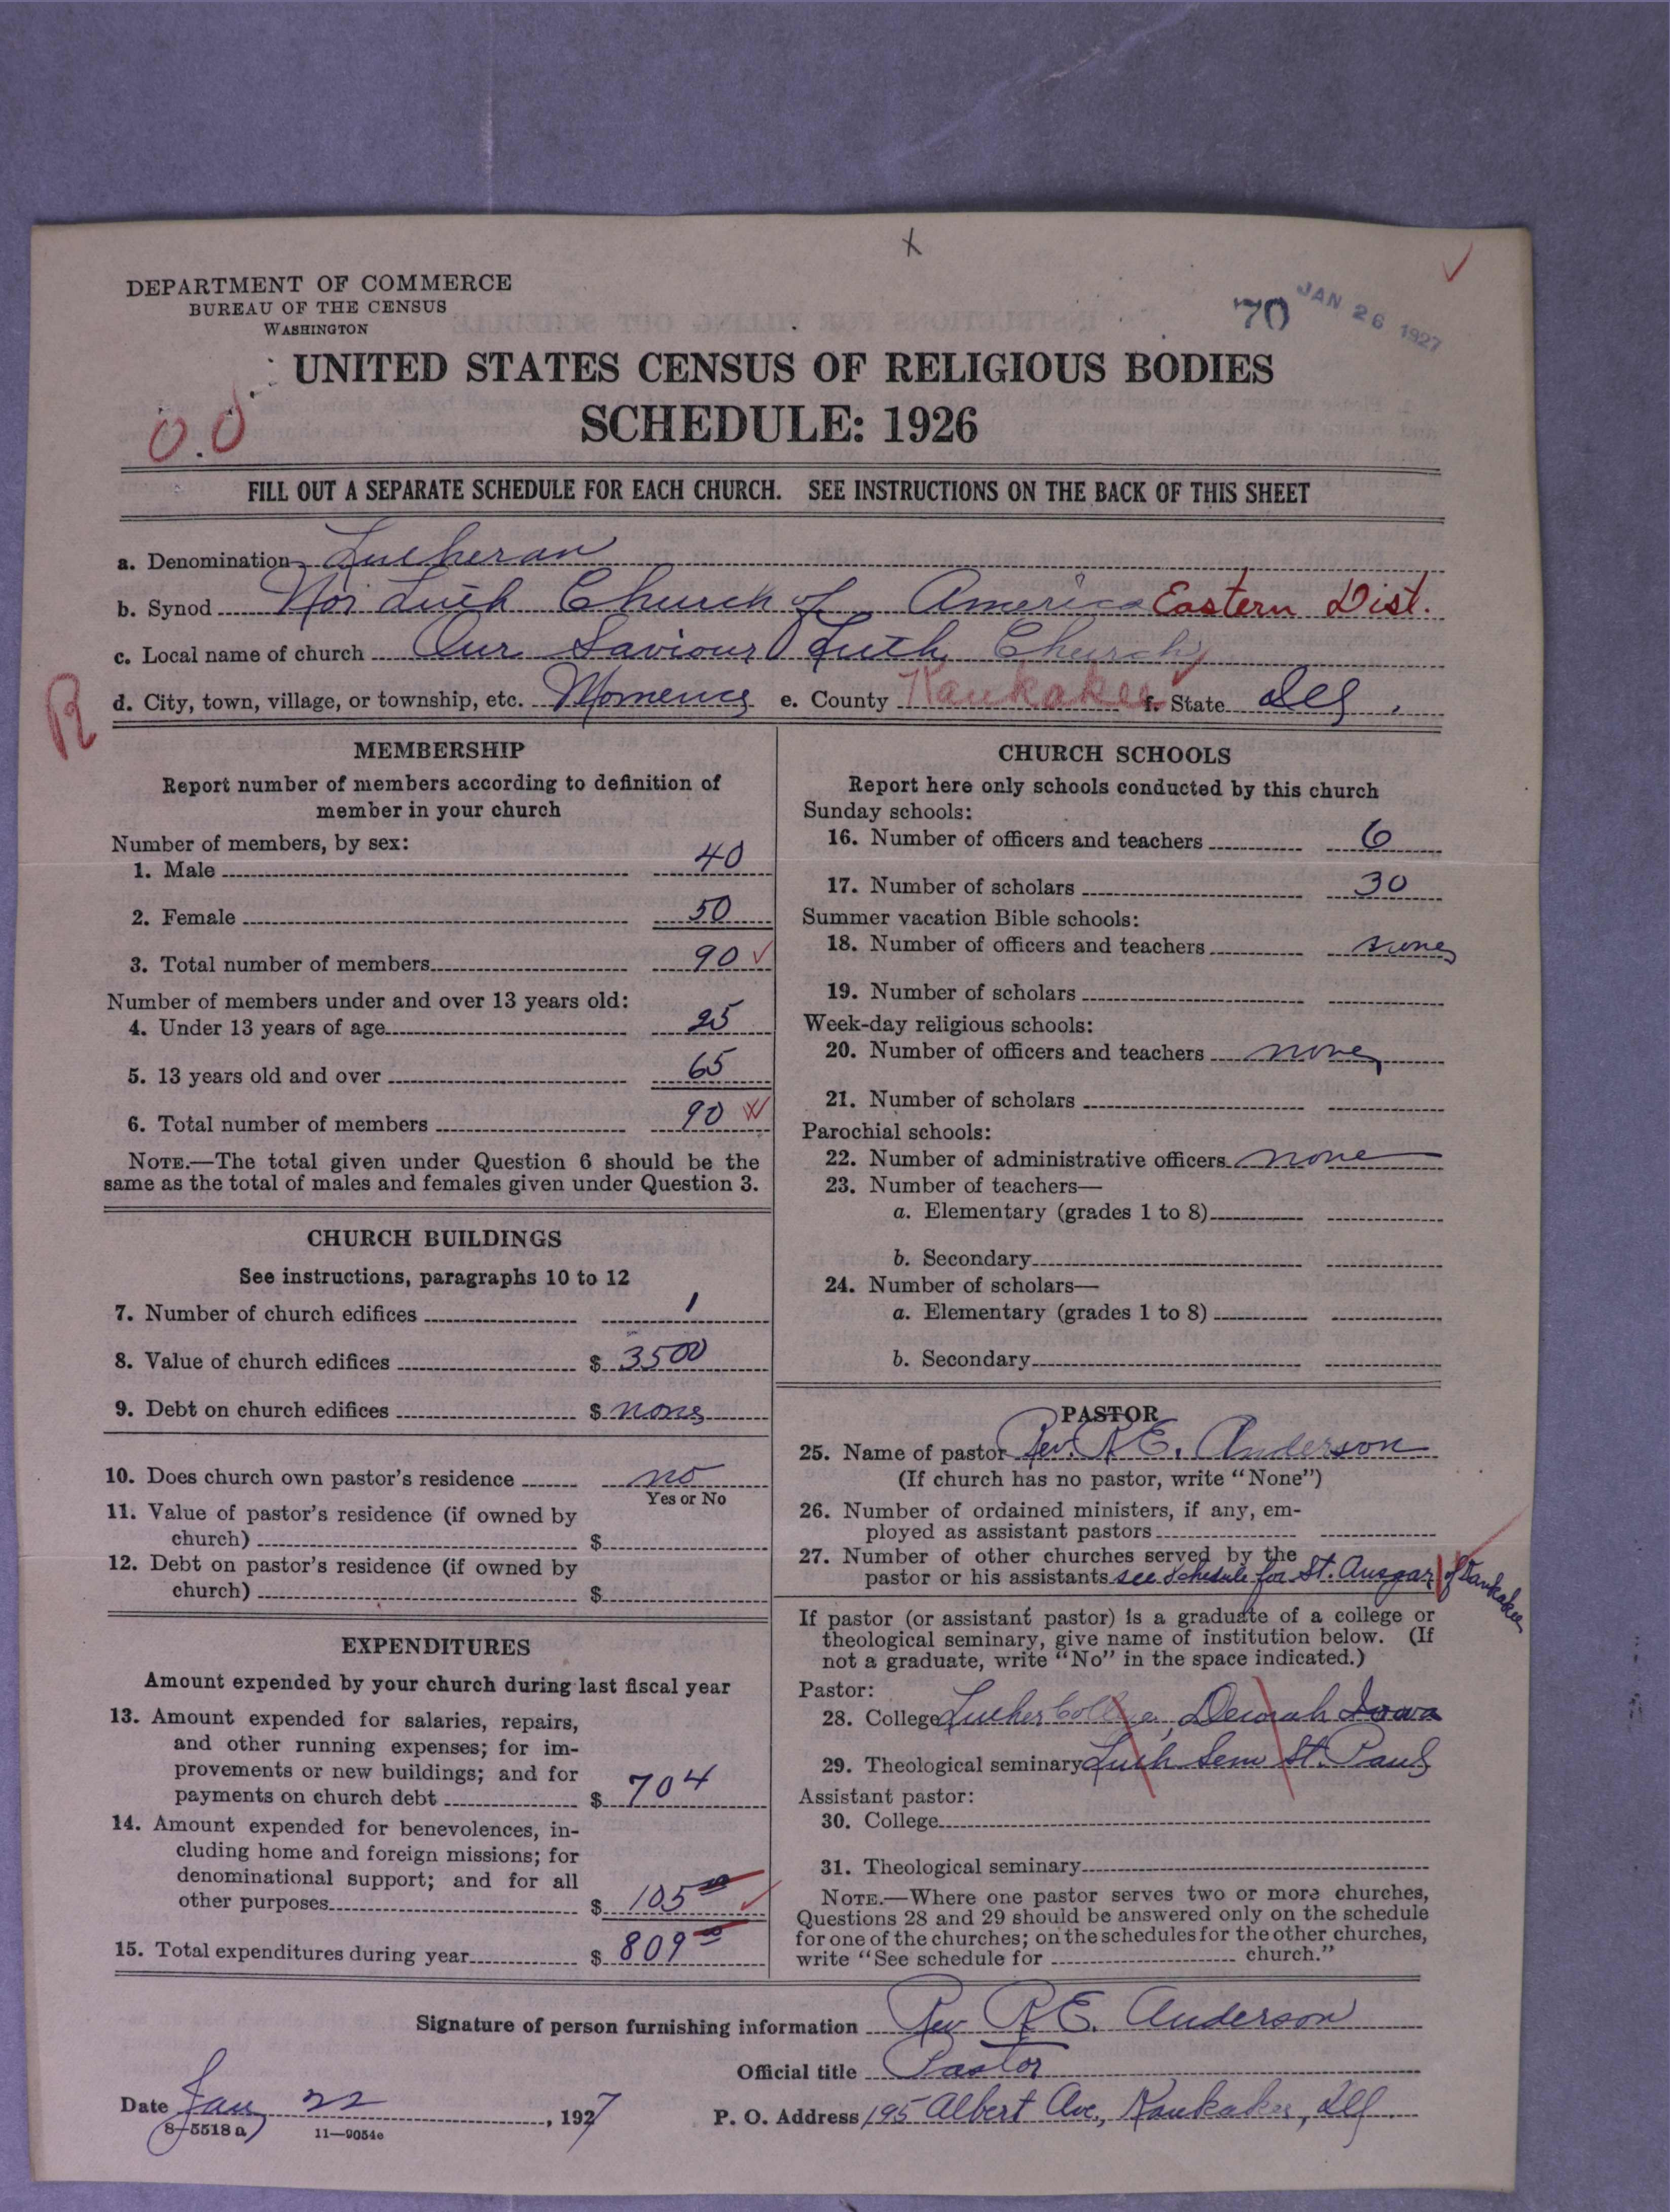 X
DEPARTMENT OF COMMERCE
BUREAU OF THE CENSUS
WASHINGTON
70 JAN 26 1927
UNITED STATES CENSUS OF RELIGIOUS BODIES
SCHEDULE: 1926
FILL OUT A SEPARATE SCHEDULE FOR EACH CHURCH. SEE INSTRUCTIONS ON THE BACK OF THIS SHEET
a. Denomination Lutheran
b. Synod Nor Luth Church of America Eastern Dist.
c. Local name of church Our Saviour Luth Church
R
d. City, town, village, or township, etc. Momence e. County Kankakee f. State Ill.
MEMBERSHIP
Report number of members according to definition of
member in your church
Number of members, by sex:
1. Male 40
2. Female 50
3. Total number of members 90
Number of members under and over 13 years old:
4. Under 13 years of age 25
5. 13 years old and over 65
6. Total number of members 90
NOTE.—The total given under Question 6 should be the
same as the total of males and females given under Question 3.
CHURCH BUILDINGS
See instructions, paragraphs 10 to 12
7. Number of church edifices 1
8. Value of church edifices $ 3500
9. Debt on church edifices $ none
10. Does church own pastor's residence no
Yes or No
11. Value of pastor's residence (if owned by
church) $
12. Debt on pastor's residence (if owned by
church) $
EXPENDITURES
Amount expended by your church during last fiscal year
13. Amount expended for salaries, repairs,
and other running expenses; for im-
provements or new buildings; and for
payments on church debt $ 704
14. Amount expended for benevolences, in-
cluding home and foreign missions; for
denominational support; and for all
other purposes $ 105 00
15. Total expenditures during year $ 809 00
CHURCH SCHOOLS
Report here only schools conducted by this church
Sunday schools:
16. Number of officers and teachers 6
17. Number of scholars 30
Summer vacation Bible schools:
18. Number of officers and teachers none
19. Number of scholars
Week-day religious schools:
20. Number of officers and teachers none
21. Number of scholars
Parochial schools:
22. Number of administrative officers none
23. Number of teachers—
a. Elementary (grades 1 to 8)
b. Secondary
24. Number of scholars—
a. Elementary (grades 1 to 8)
b. Secondary
PASTOR
25. Name of pastor Rev. R E. Anderson
(If church has no pastor, write "None")
26. Number of ordained ministers, if any, em-
ployed as assistant pastors
27. Number of other churches served by the
pastor or his assistants see schedule for St. Ansgar of Kankakee
If pastor (or assistant pastor) is a graduate of a college or
theological seminary, give name of institution below. (If
not a graduate, write "No" in the space indicated.)
Pastor:
28. College Luther College, Decorah Iowa
29. Theological seminary Luth Sem St. Paul
Assistant pastor:
30. College
31. Theological seminary
NOTE.—Where one pastor serves two or more churches,
Questions 28 and 29 should be answered only on the schedule
for one of the churches; on the schedules for the other churches,
write "See schedule for church."
Signature of person furnishing information Rev R E. Anderson
Official title Pastor
Date Jan 22, 1927 P. O. Address 195 Albert Ave., Kankakee, Ill.
8-5518 a 11—9054c